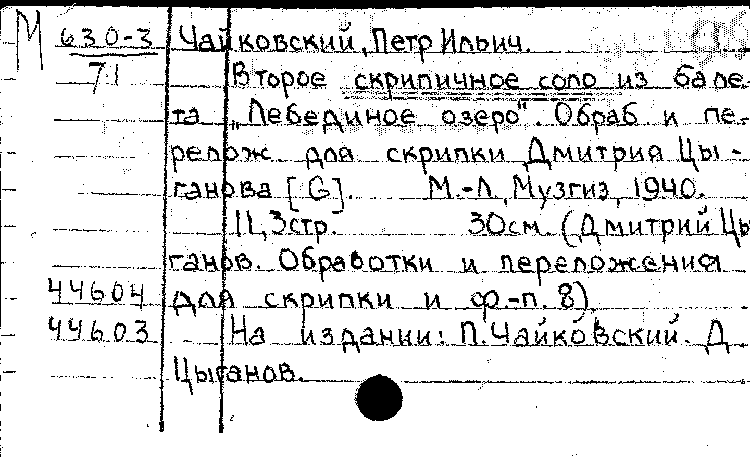 М 630-3 Чайковский, Петр Ильич.
71 Второе скрипичное соло из бале-
та „Лебединое озеро". Обраб и пе-
релож. для скрипки Дмитрия Цы-
ганова [G]. М.-Л, Музгиз, 1940.
11,3стр. 30см. (Дмитрий Цы
ганов. Обработки и переложения
44604 для скрипки и ф-п. 8)
44603 На издании: П.Чайковский. Д
Цыганов.